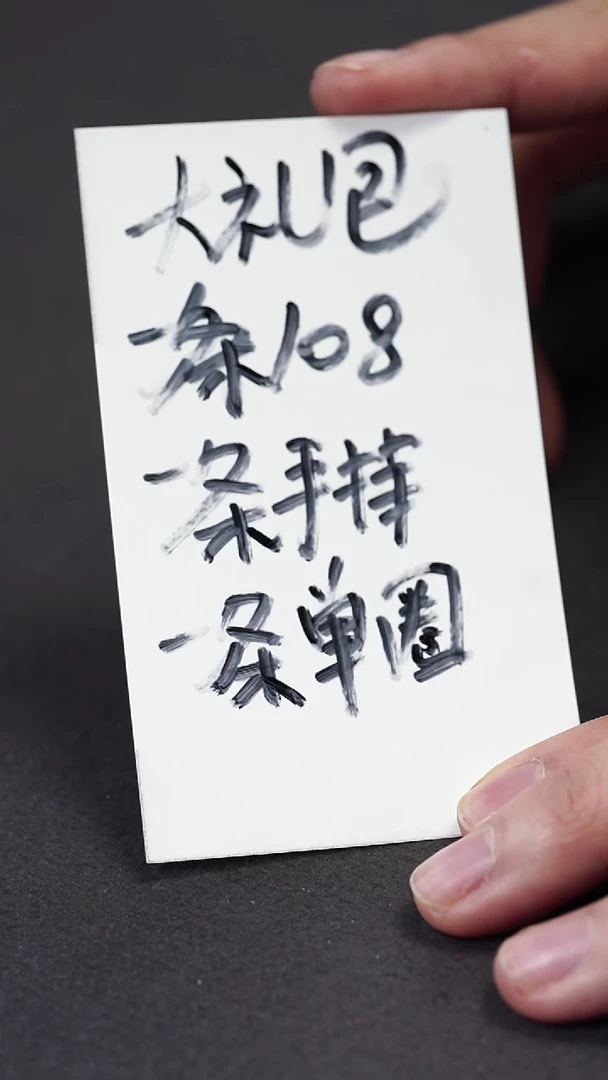 大礼包
一条108
一条手排
一条单圈